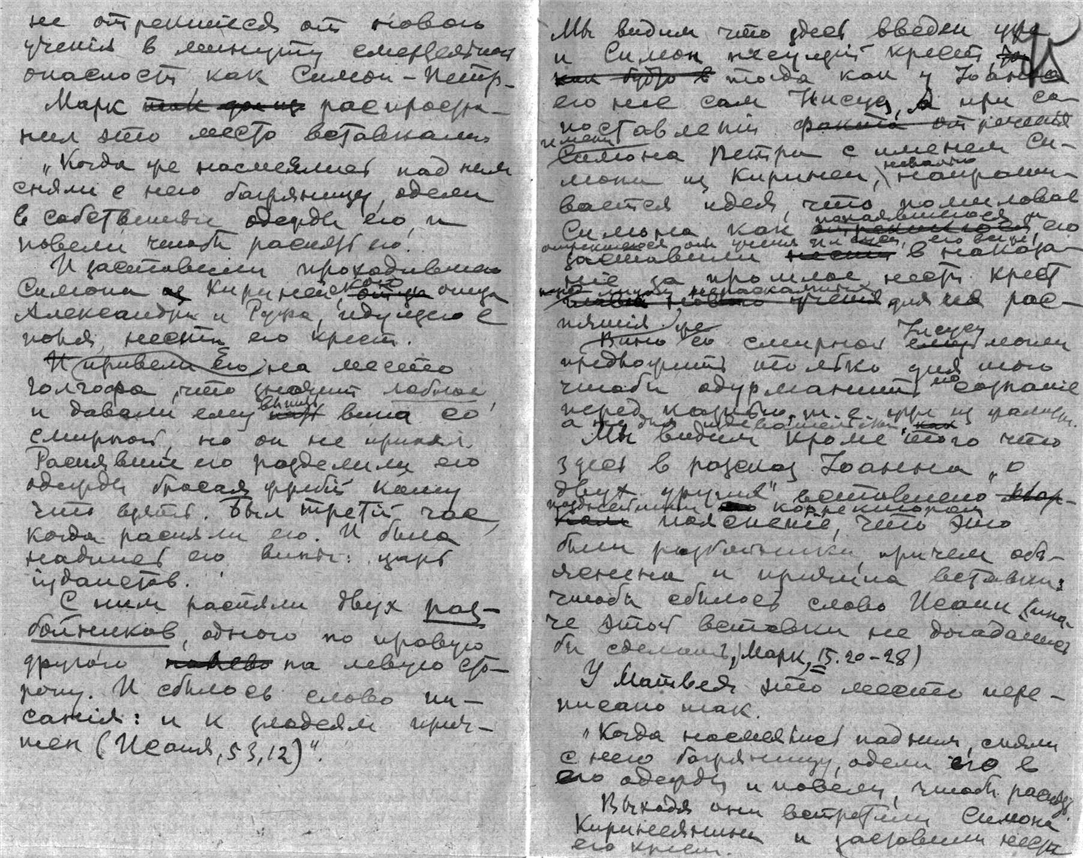 не отрекшегося от нового
ученія в минуту смертельной
опасности как Симон-Петр.
Марк так дальш распростра-
нил это место вставками
„Когда же насмеялись над ним
сняли с него багряницу, одели
в собственные одежды его, и
повели, чтобы распять его.
И заставили проходившего
Симона из Киринеи, отца
Александра и Руфа, идущего с
поля, нести его крест.
И привели Его на место
голгофа, что значит лобное,
и давали ему выпить вина со
смирной, но он не принял
Распявши его разделили его
одежды бросая жребій кому
что взять. Был третій час,
когда распяли его. И была
надпись его вины: царь
іудаистов.
С ним распяли двух раз-
бойников, одного по правую
другого налево на левую сто-
рону. И сбылось слово пи-
санія: и к злодеям прич-
тен (Исаія, 53, 12)".
Мы видим что здесь введен уже
и Симон несущій крест,
как будто тогда как у Іоанна
его нес сам Іисус, а при со-
поставленіи факта отреченія
имени
Симона Петра с именем Си-
мона из Киринеи, невольно напраши-
вается идея, что помиловав
Симона как покаявшегося и
отрекшегося от ученія его
заставили нести в наказа-
ніе за прошлое нести крест
ученія для его рас-
пятія
Вино же со смирной Іисусу могли
предложить только для того
чтобы одурманить его сознаніе
перед казнью, т. е.
Мы видим кроме этого что
здесь в рассказ Іоанна „о
двух других" вставлено
позднейшим корректором
поясненіе, что это
были разбойники, причем объ-
яснена и причина вставки:
чтобы сбылось слово Исаии (ина-
че этой вставки не догадались
бы сделать, Марк, 15. 20-28)
У Матвея это место пере-
писано так.
„Когда насмеялись над ним, сняли
с него багряницу, одели его в
его одежды и повели, чтобы распять.
Выходя они встретили Симона
Киринеянина и заставили нести
его крест.